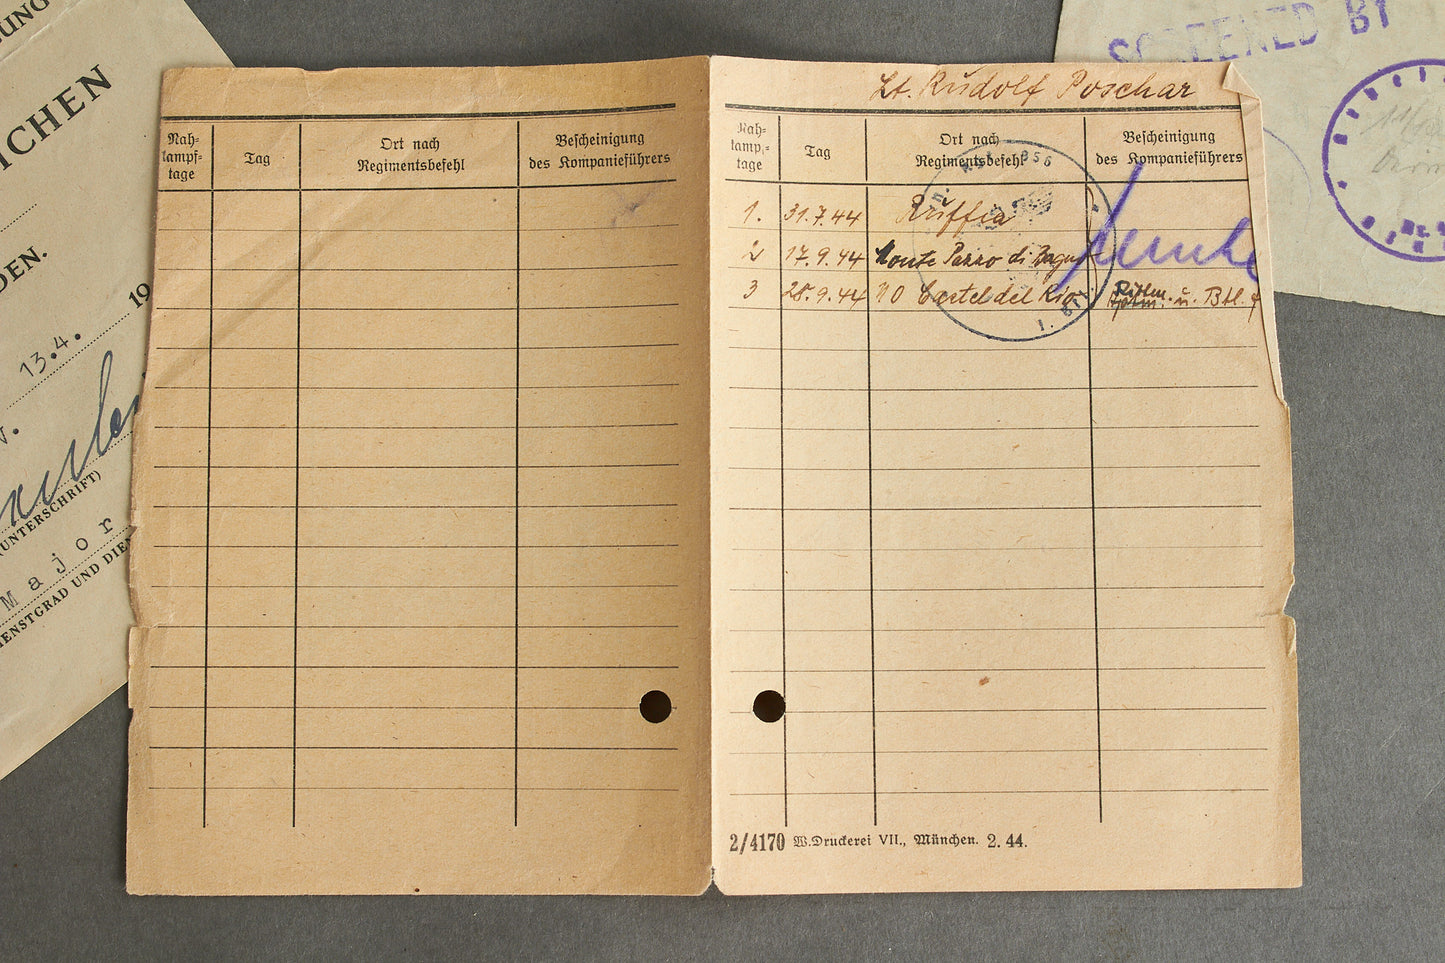 ICHEN
DEN.
19
13.4.
(UNTERSCHRIFT)
Major
IENSTGRAD UND DIEN
SCREENED BY
Lt. Rudolf Poschar
Nah=
kampf=
tage
Tag
Ort nach
Regimentsbefehl
Bescheinigung
des Kompanieführers
Nah=
kamp.=
tage
Tag
Ort nach
Regimentsbefehl
Bescheinigung
des Kompanieführers
1. 31.7.44 Ruffia
2 17.9.44 Monte Pazzo di
3 28.9.44 NO Castel del Rio Rittm. u. Btl.
2/4170 W.Druckerei VII., München. 2. 44.